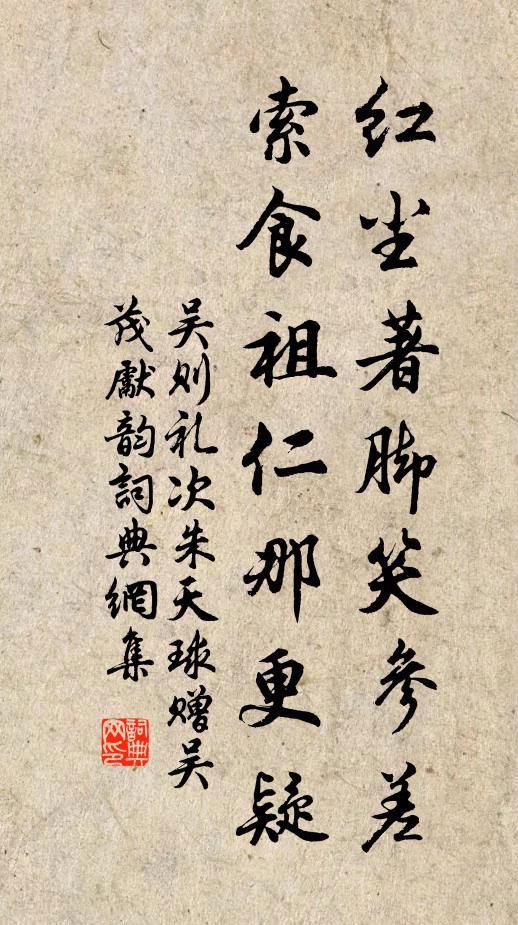 红尘著脚笑参差
索食祖仁那更疑
吴则礼次朱天球赠吴
茂獻韵詞典網集
詞典网印